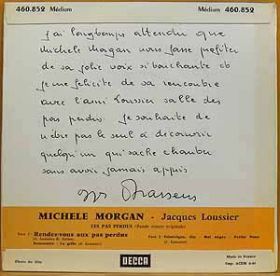 460.852 Médium Médium 460.852
j'ai longtemps attendu que
Michèle Morgan nous fasse profiter
de sa jolie voix si touchante et
je me félicite de sa rencontre
avec l'ami Loussier salle des
pas perdus. Je souhaite de
n'être pas le seul à découvrir
quelqu'un qui sache chanter
sans avoir jamais appris
Brassens
MICHELE MORGAN - Jacques Loussier
LES PAS PERDUS (Bande sonore originale)
Face 1 : Rendez-vous aux pas perdus
Face 2 :
DECCA
Made in France